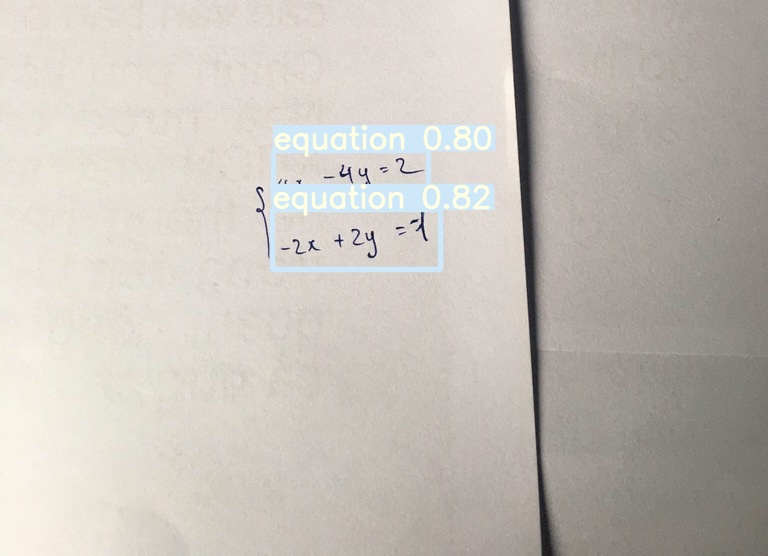 equation 0.80
-4y = 2
equation 0.82
-2x + 2y = -1